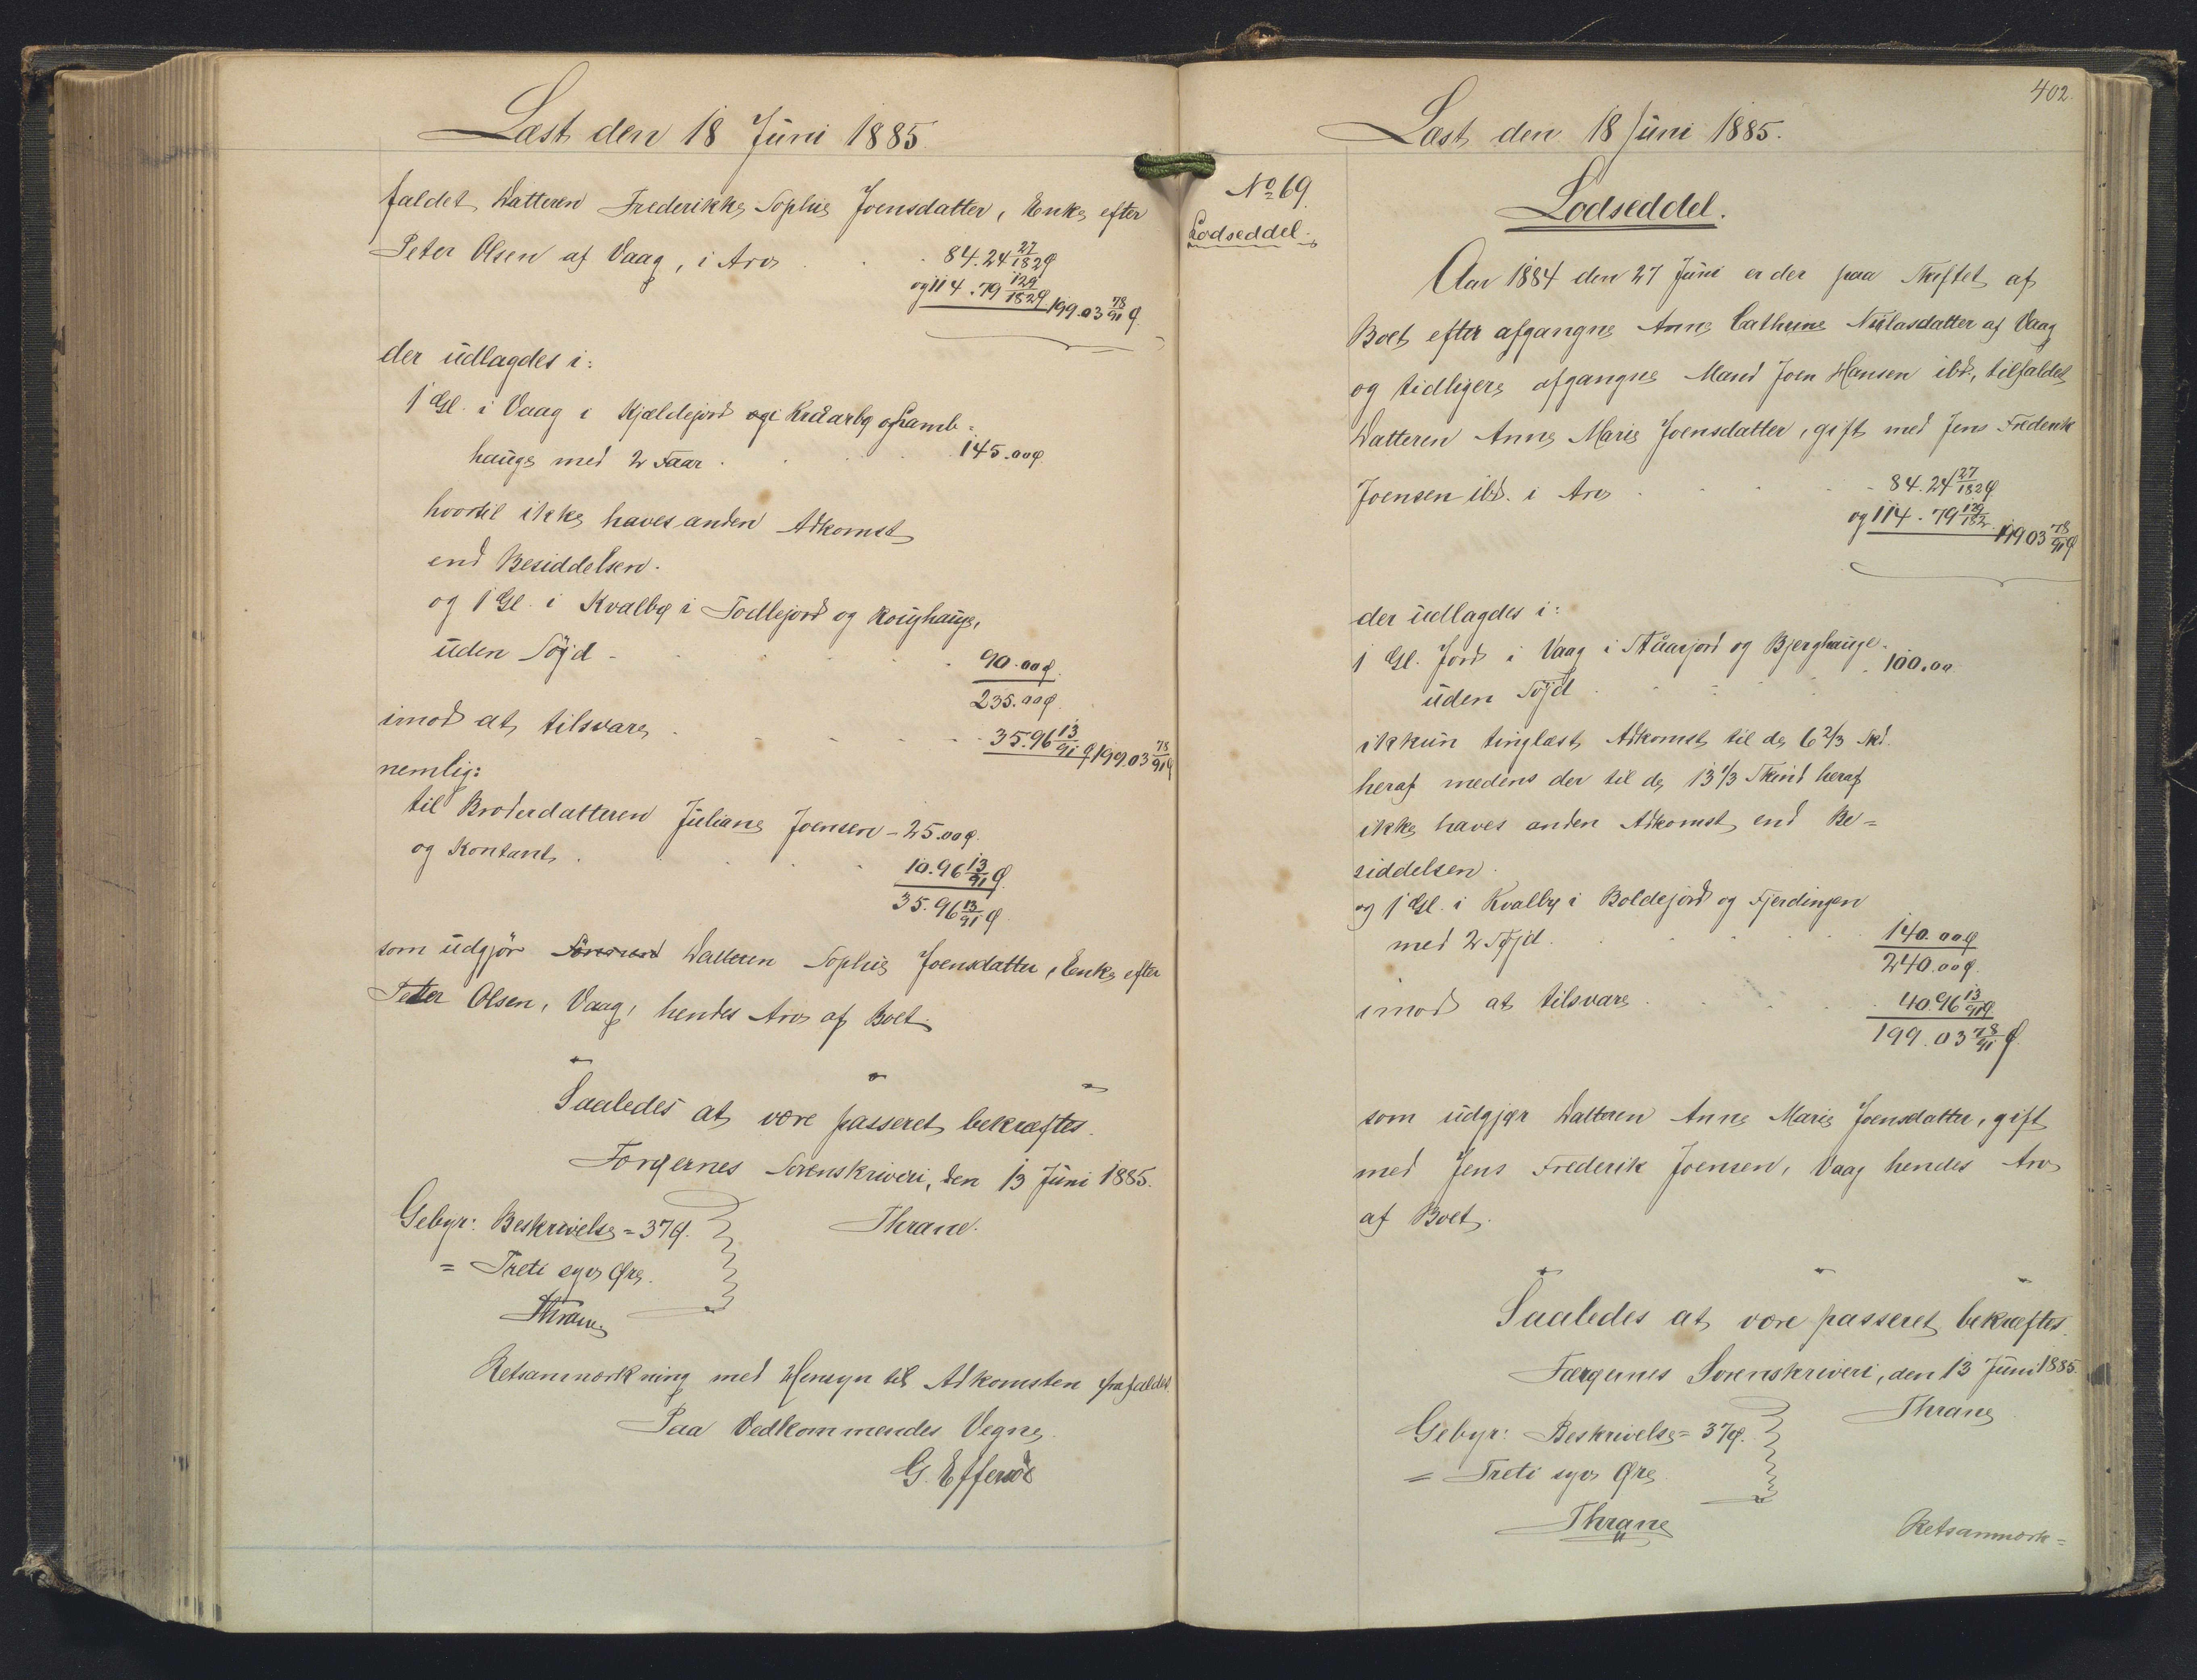 Læst den 18 Juni 1885.
faldet Datteren Frederikke Sophie Joensdatter, Enke efter
Peter Olsen af Vaag, i Arv . . 84.24 27/182 Ø
og 114.79 129/182 Ø 199.03 78/91 Ø.
der udlagdes i:
1 Gl. i Vaag i Kjældejord og i og Lamb=
hauge med 2 Faar . . . 145.00 Ø
hvortil ikke haves anden Adkomst
end Besiddelsen.
og 1 Gl. i Kvalbø i Todlejord og
uden Søjd . . . 90.00 Ø
235.00 Ø
imod at tilsvare . . . 35.96 13/91 Ø 199.03 78/91 Ø
nemlig:
til Broderdatteren Juliane Joensen – 25.00 Ø.
og Kontant . . . 10.96 13/91 Ø
35.96 13/91 Ø.
som udgjør Datteren Sophie Joensdatter, Enke efter
Peter Olsen, Vaag, hendes Arv af Boet.
Saaledes at være passeret bekræftes.
Færøernes Sorenskriveri, den 13 Juni 1885.
Gebyr: Beskrivelse = 37 Ø. Thrane.
= Treti syv Øre.
Thrane
Retsanmærkning med Hensyn til Adkomsten frafaldet.
Paa Vedkommendes Vegne.
G. Effersøe
402.
Læst den 18 Juni 1885.
No 69.
Lodseddel.
Lodseddel.
Aar 1884 den 27 Juni er der paa Skiftet af
Boet efter afgangne Anne Cathrine Niclasdatter af Vaag
og tidligere afgangne Mand Joen Hansen ibd., tilfaldet
Datteren Anne Marie Joensdatter, gift med Jens Frederik
Joensen ibd. i Arv . . . 84.24 27/182 Ø
og 114.79 129/182 199 03 78/91 Ø
der udlagdes i:
1 Gl. Jord i Vaag i Stuarjord og Bjerghauge
uden Søjd . . . 100.00
ikkun tinglæst Adkomst til de 6 2/3 Skd.
heraf medens der til de 13 1/3 Skind heraf
ikke haves anden Adkomst end Be=
siddelsen.
og 1 Gl. i Kvalbø i Boldejord og Fjerdingen
med 2 Søjd . . . 140.00 Ø
240.00 Ø.
imod at tilsvare . . . 40.96 13/91 Ø
199.03 78/91 Ø.
som udgjør Datteren Anne Marie Joensdatter, gift
med Jens Frederik Joensen, Vaag hendes Arv
af Boet.
Saaledes at være passeret bekræftes.
Færøernes Sorenskriveri, den 13 Juni 1885.
Gebyr: Beskrivelse = 37 Ø. Thrane
= Treti syv Øre.
Thrane
Retsanmærk=